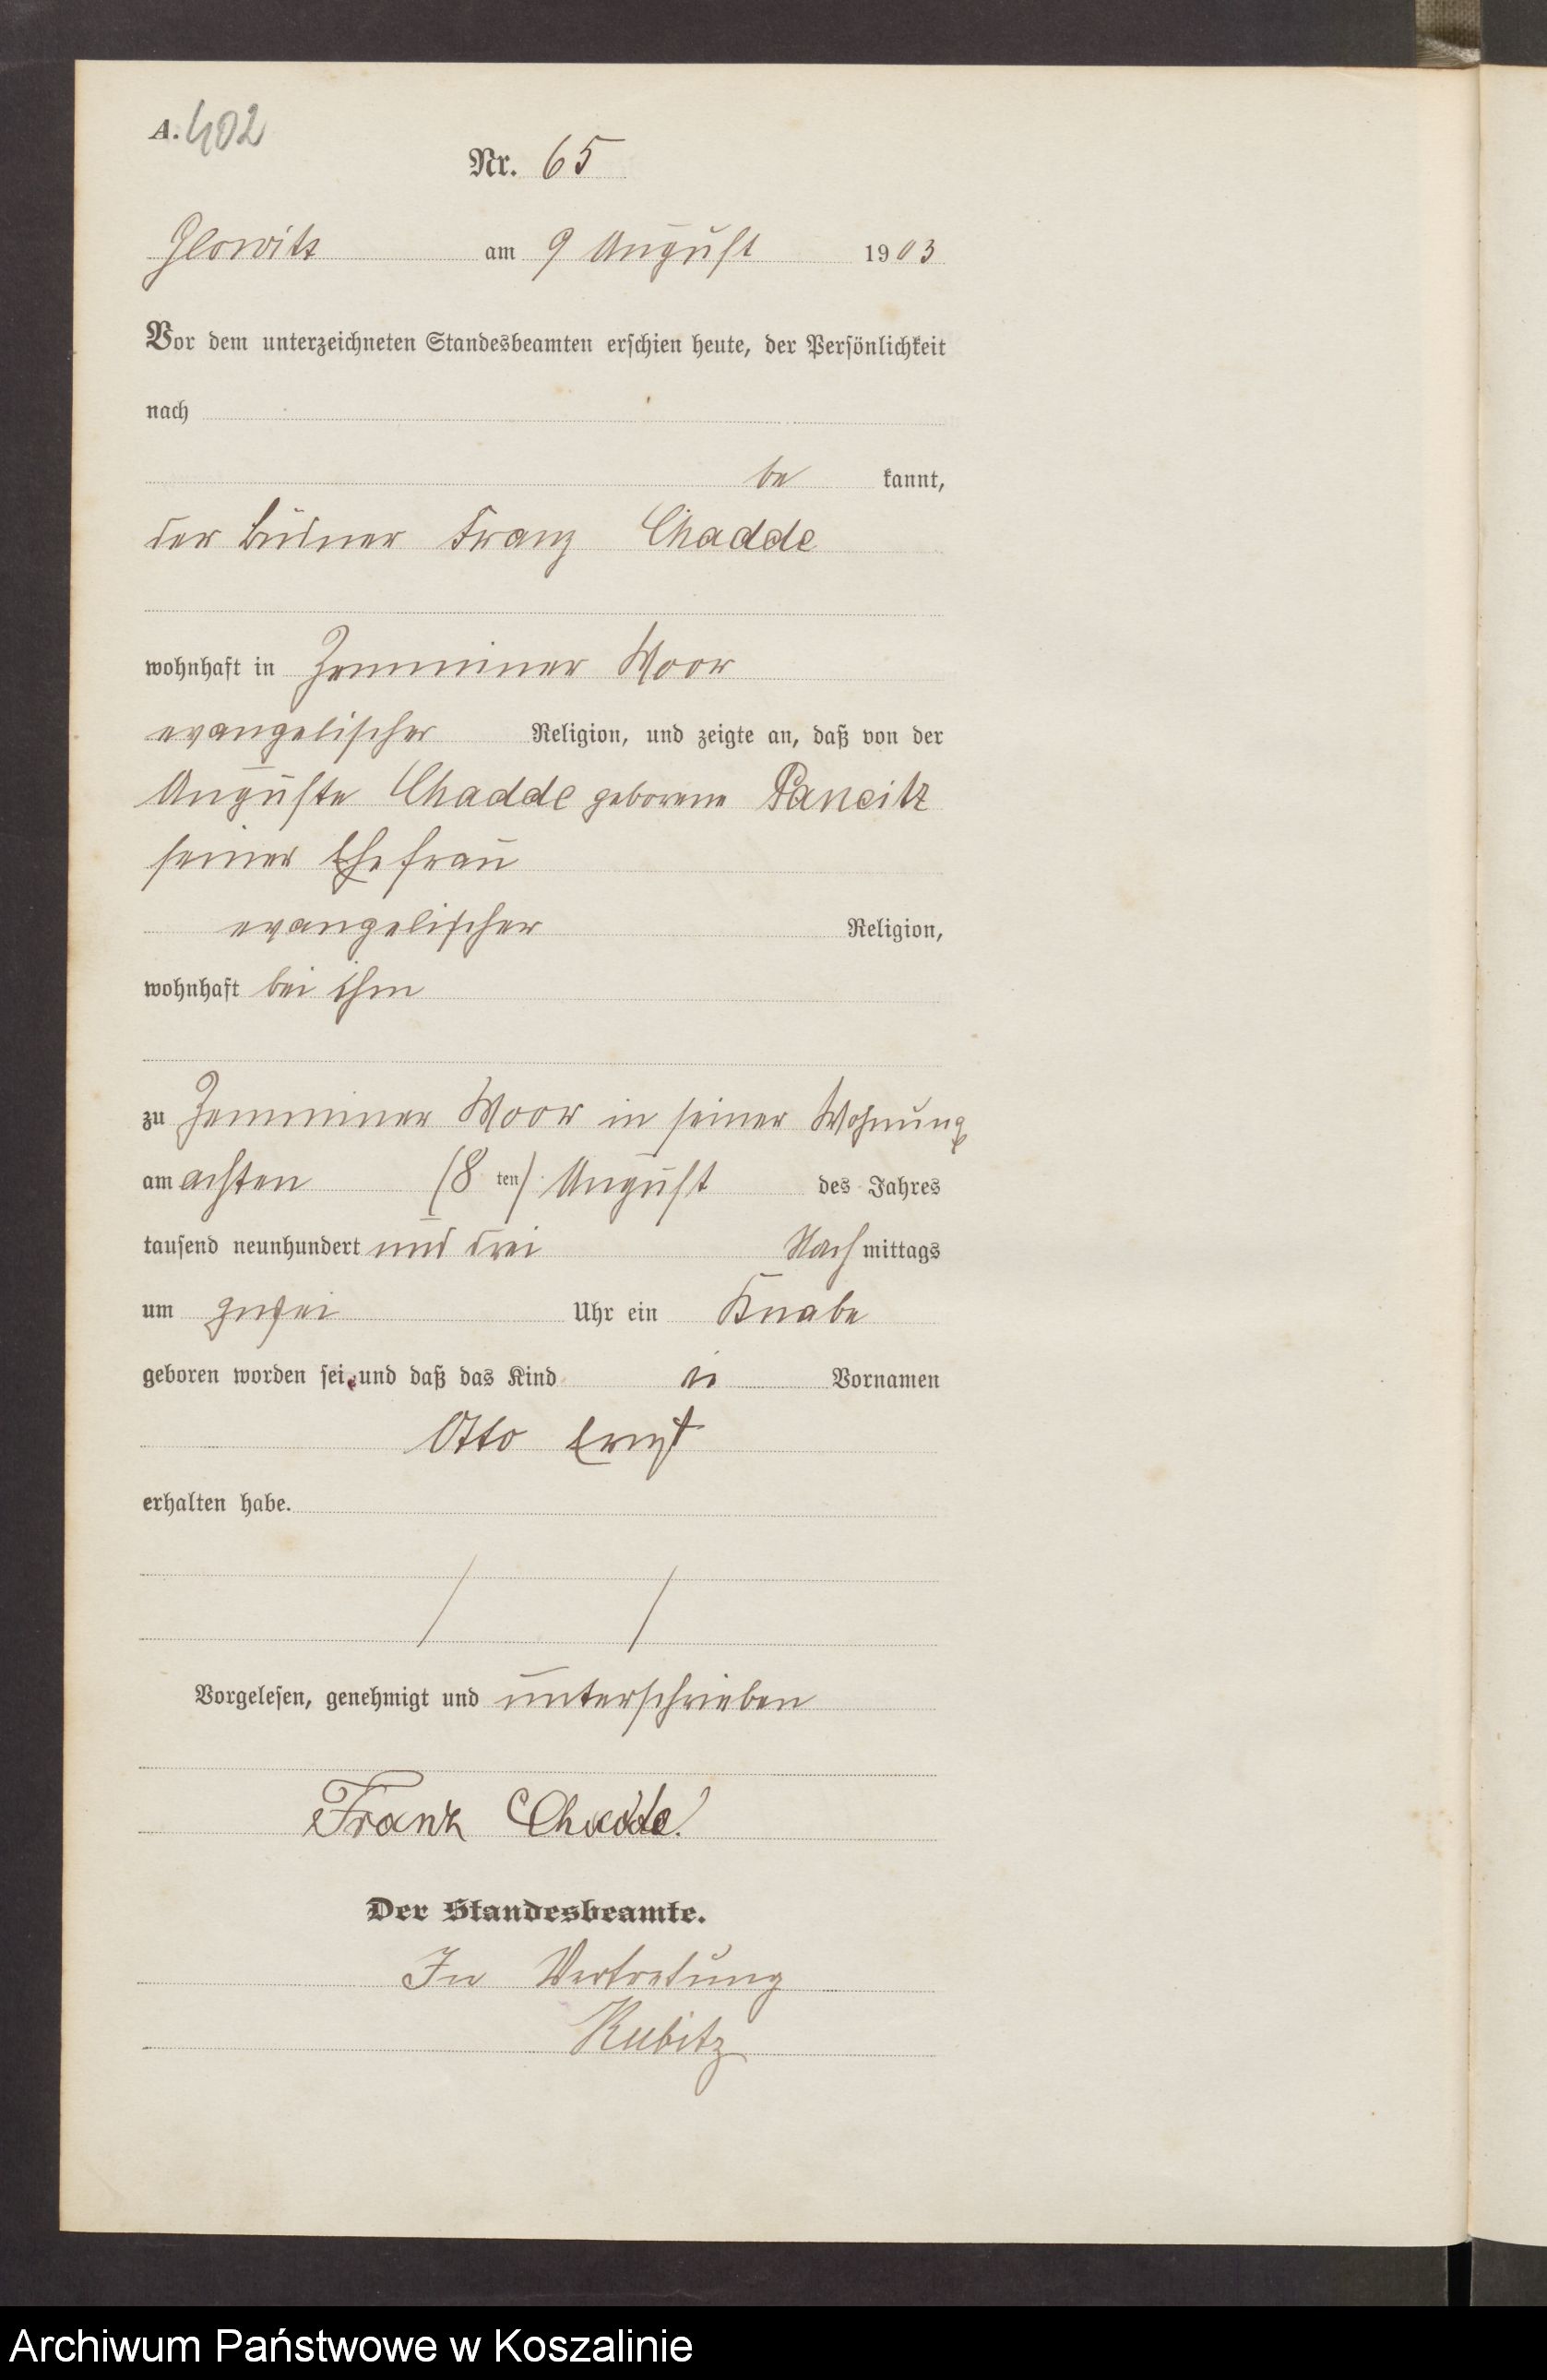 A. 402
Nr. 65
Glowitz am 9 August 1903
Vor dem unterzeichneten Standesbeamten erschien heute, der Persönlichkeit
nach
be kannt,
der Büdner Franz Chadde
wohnhaft in Zemminer Moor
evangelischer Religion, und zeigte an, daß von der
Auguste Chadde geborene Paneitz
seiner Ehefrau
evangelischer Religion,
wohnhaft bei ihm
zu Zemminer Moor in seiner Wohnung
am achten (8 ten) August des Jahres
tausend neunhundert und drei Nach mittags
um zwei Uhr ein Knabe
geboren worden sei und daß das Kind die Vornamen
Otto Ernst
erhalten habe.
Vorgelesen, genehmigt und unterschrieben
Franz Chadde.
Der Standesbeamte.
In Vertretung
Kubitz
Archiwum Państwowe w Koszalinie